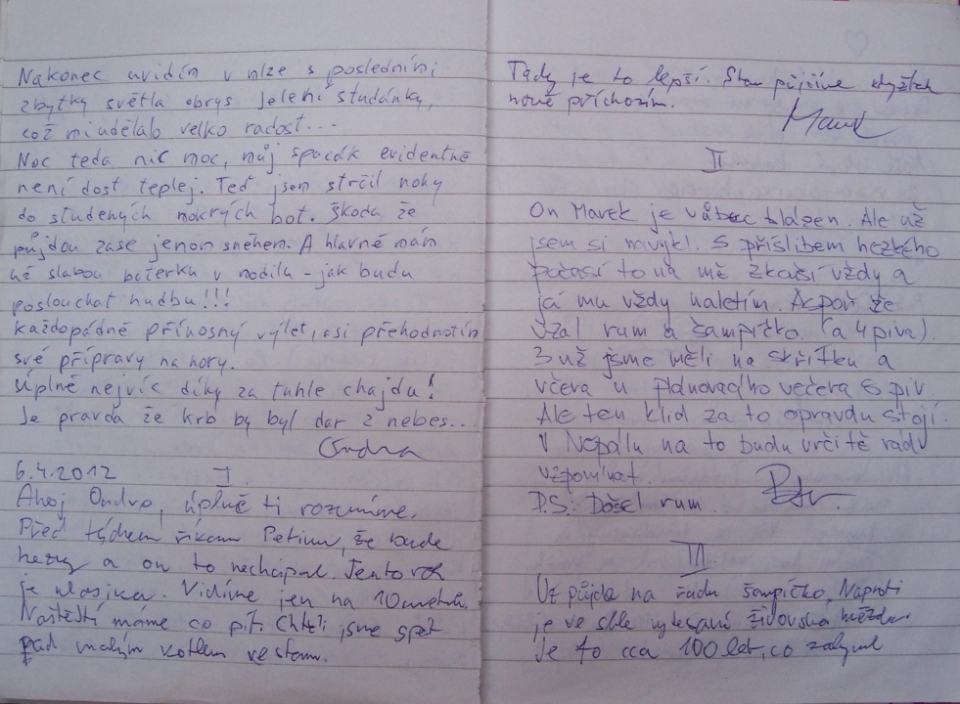 Nakonec uvidím v mlze s posledními
zbytky světla obrys Jelení studánky,
což mi udělalo velko radost...
Noc teda nic moc, můj spacák evidentně
není dost teplej. Teď jsem strčil nohy
do studených mokrých bot. Škoda že
půjdou zase jenom sněhem. A hlavně mám
už slabou baterku v mobilu - jak budu
poslouchat hudbu!!!
každopádně přínosný výlet, asi přehodnotím
své přípravy na hory.
Úplně nejvíc díky za tuhle chajdu!
Je pravda že krb by byl dar z nebes...
Ondra
6.4.2012 I.
Ahoj Ondro, úplně ti rozumíme.
Před týdnem říkám Petrovi, že bude
hezky a on to nechápal. Tento rok
je klasika. Vidíme jen na 10 metrů.
Naštěstí máme co pít. Chtěli jsme spát
pod malým kotlem ve stanu.
Tady je to lepší. Stan půjčíme kdyžtak
nově příchozím.
Marek
II
On Marek je vůbec blázen. Ale už
jsem si navykl. S příslibem hezkého
počasí to na mě zkouší vždy a
já mu vždy naletím. Aspoň že
vzal rum a šampíčko. (a 4 piva).
3 už jsme měli na skřítku a
včera u plánovacího večera 6 piv
Ale ten klid za to opravdu stojí.
V Nepálu na to budu určitě rád
vzpomínat.
Petr
P.S.: Došel rum.
III
Už půjde na řadu šampíčko. Naproti
je ve skle vytesaná židovská hvězda.
Je to cca 100 let, co